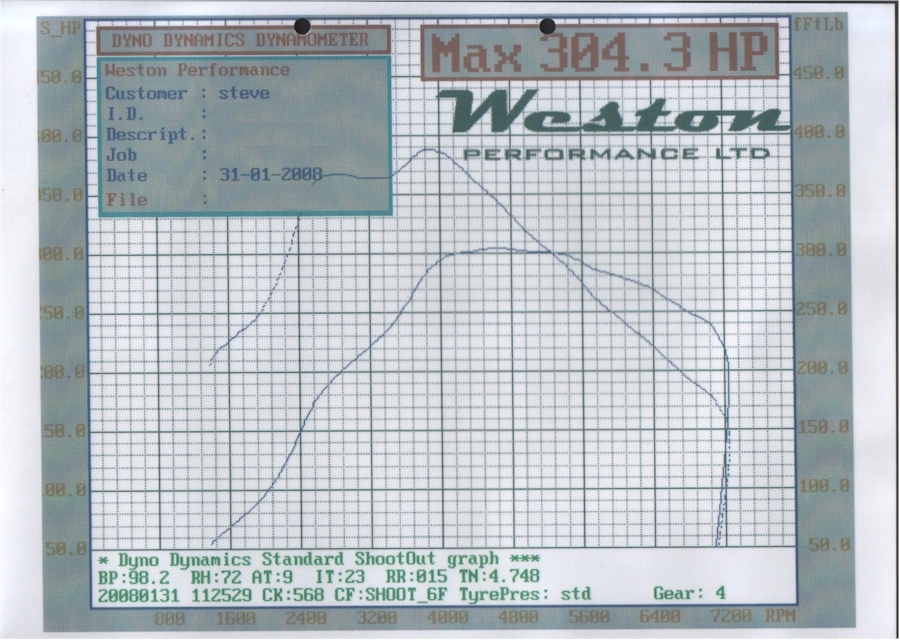 S_HP
fFtLb
DYNO DYNAMICS DYNAMOMETER
Max 304.3 HP
Weston Performance
Customer : steve
I.D. :
Descript.:
Job :
Date : 31-01-2008
File :
Weston
PERFORMANCE LTD
450.0
400.0
350.0
300.0
250.0
200.0
150.0
100.0
50.0
450.0
400.0
350.0
300.0
250.0
200.0
150.0
100.0
50.0
* Dyno Dynamics Standard ShootOut graph ***
BP:98.2 RH:72 AT:9 IT:23 RR:015 TN:4.748
20080131 112529 CK:568 CF:SHOOT_6F TyrePres: std Gear: 4
800 1600 2400 3200 4000 4800 5600 6400 7200 RPM